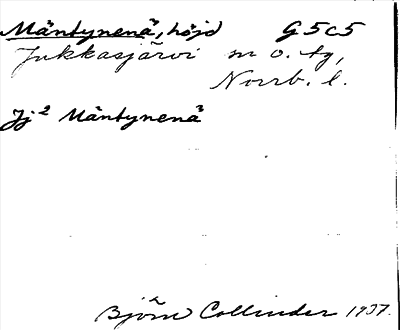 Mäntynenä, höjd G5c5
Jukkasjärvi sn o. tg,
Norrb. l.
Jj² Mäntynenä
Björn Collinder 1937.